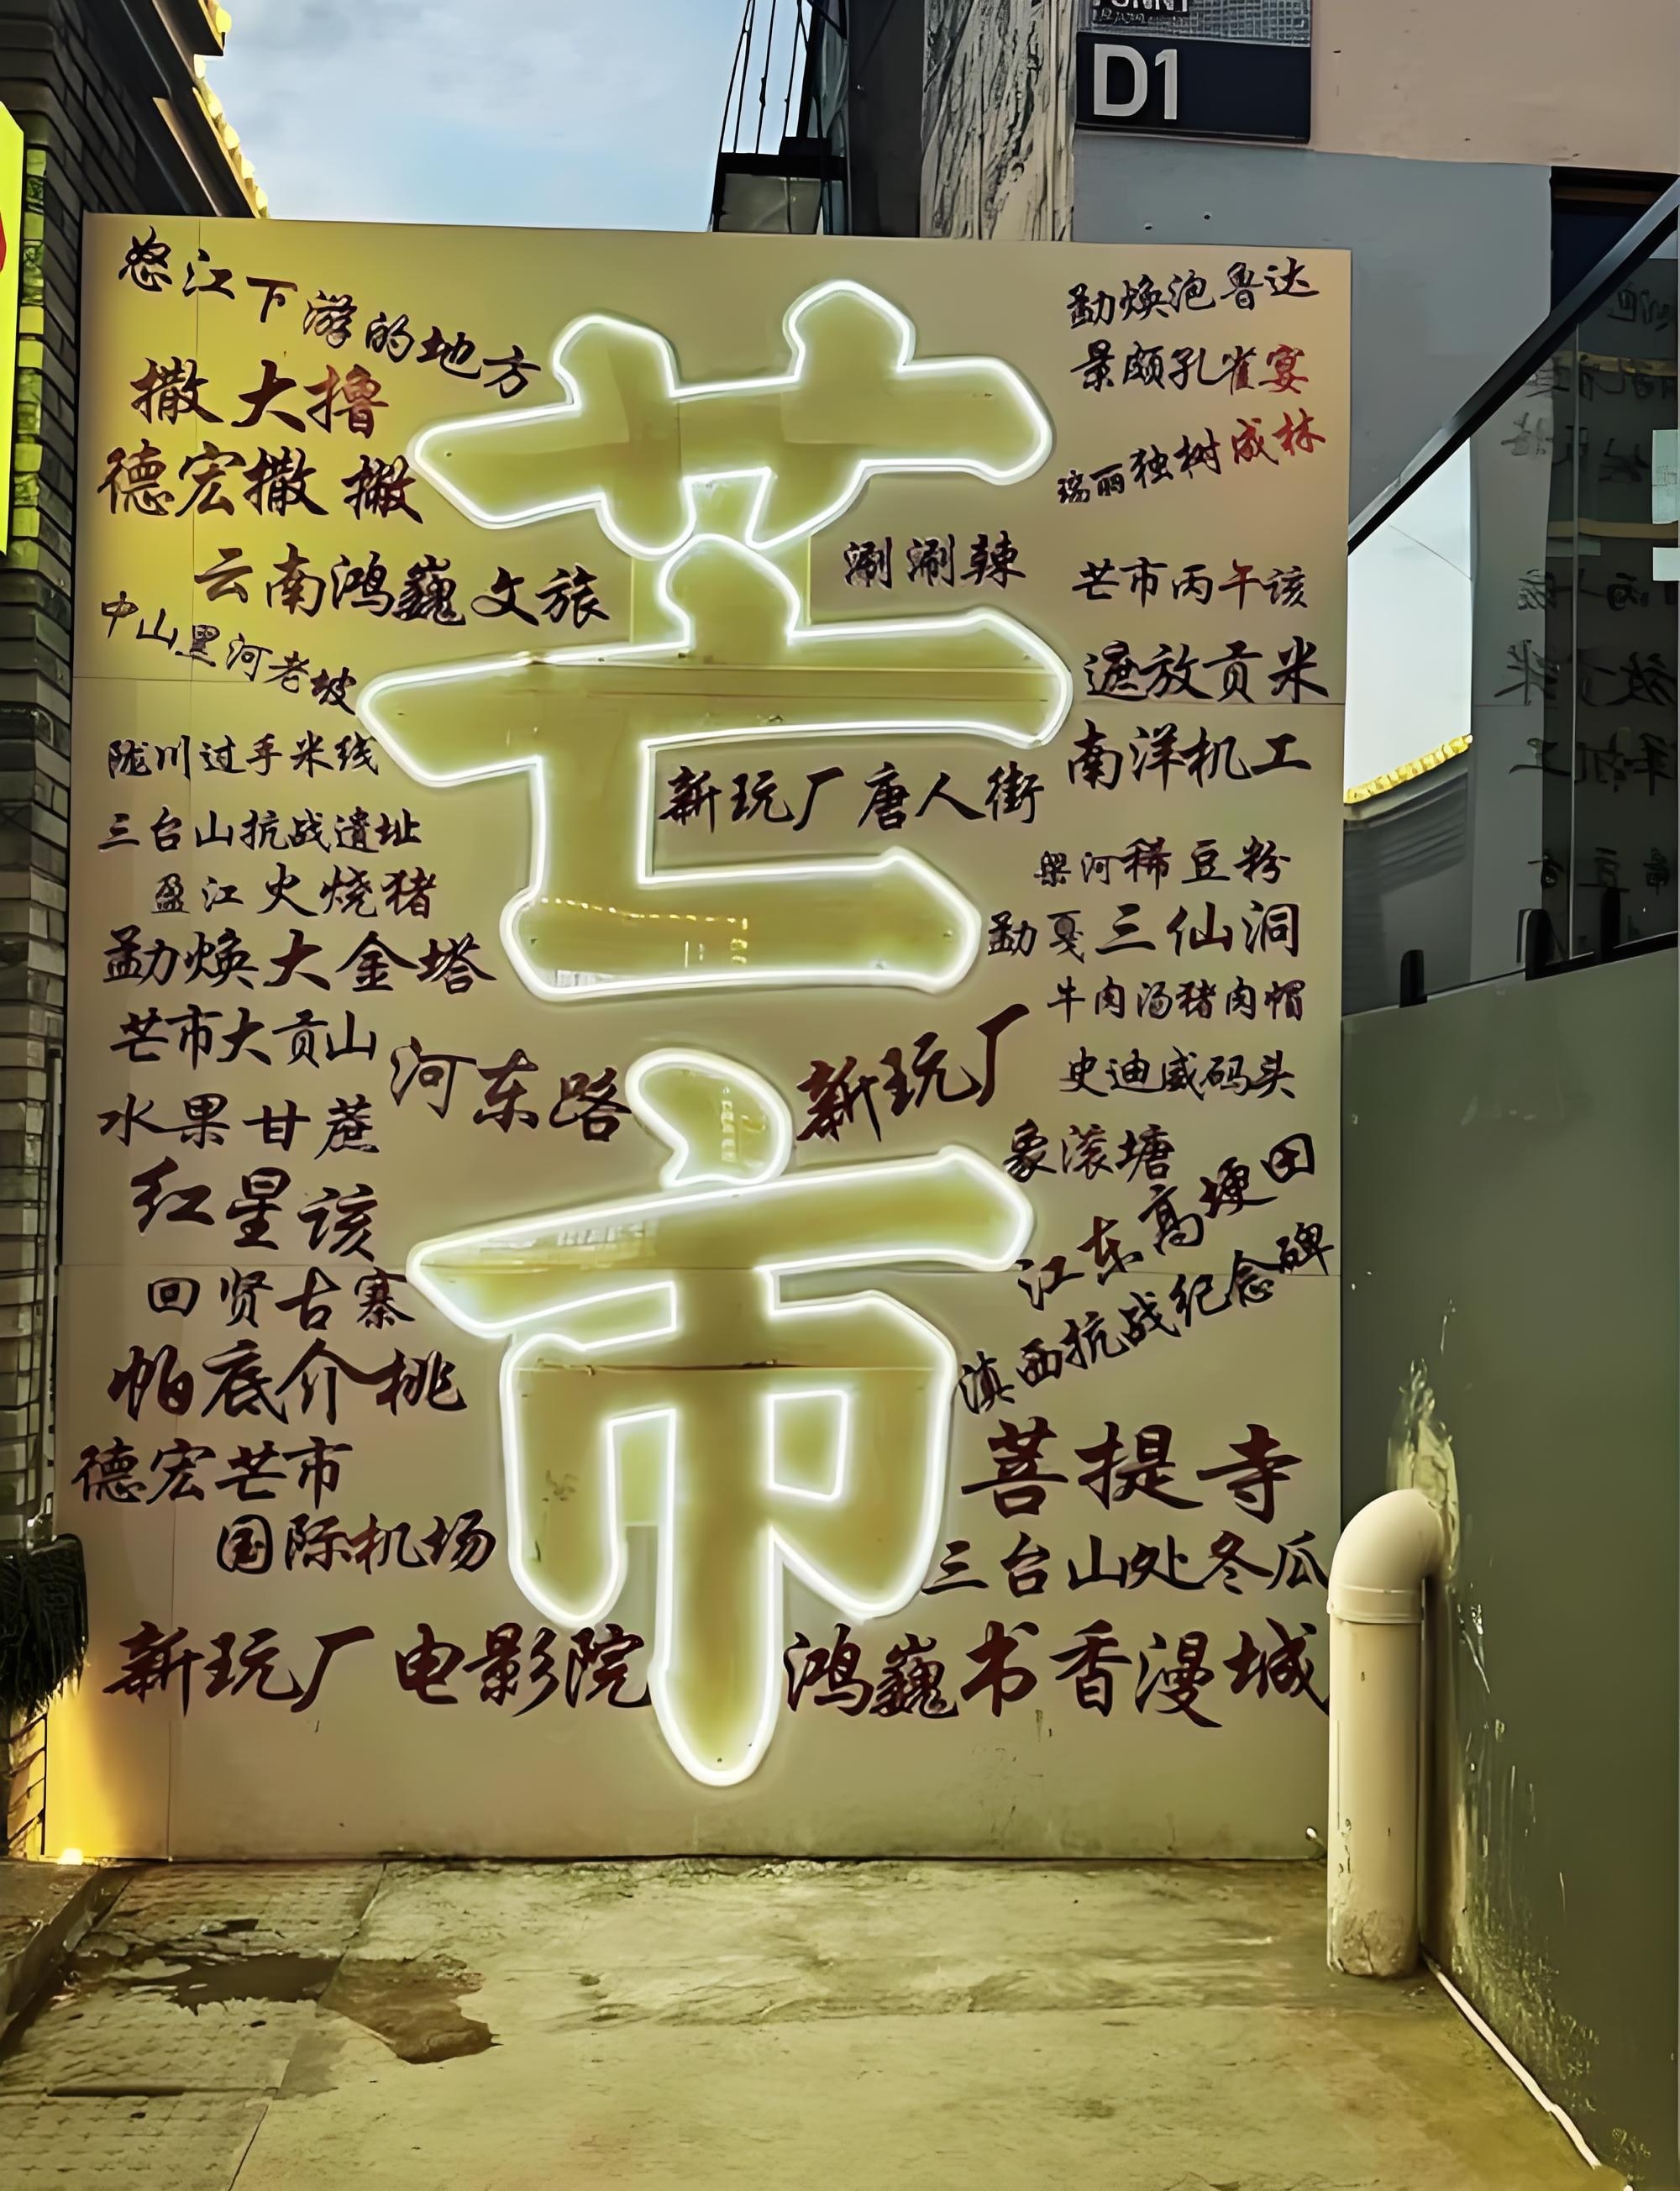 D1
怒江下游的地方
撒大撸
德宏撒撇
云南鸿巍文旅
中山黑河老坡
陇川过手米线
三台山抗战遗址
盈江火烧猪
勐焕大金塔
芒市大贡山
水果甘蔗
红星该
回贤古寨
帕底介桃
德宏芒市
国际机场
新玩厂电影院
芒市
涮涮辣
新玩厂唐人街
河东路
新玩厂
勐焕泡鲁达
景颇孔雀宴
瑞丽独树成林
芒市丙午该
遮放贡米
南洋机工
梁河稀豆粉
勐戛三仙洞
牛肉汤猪肉帽
史迪威码头
象滚塘
江东高埂田
滇西抗战纪念碑
菩提寺
三台山处冬瓜
鸿巍书香漫城